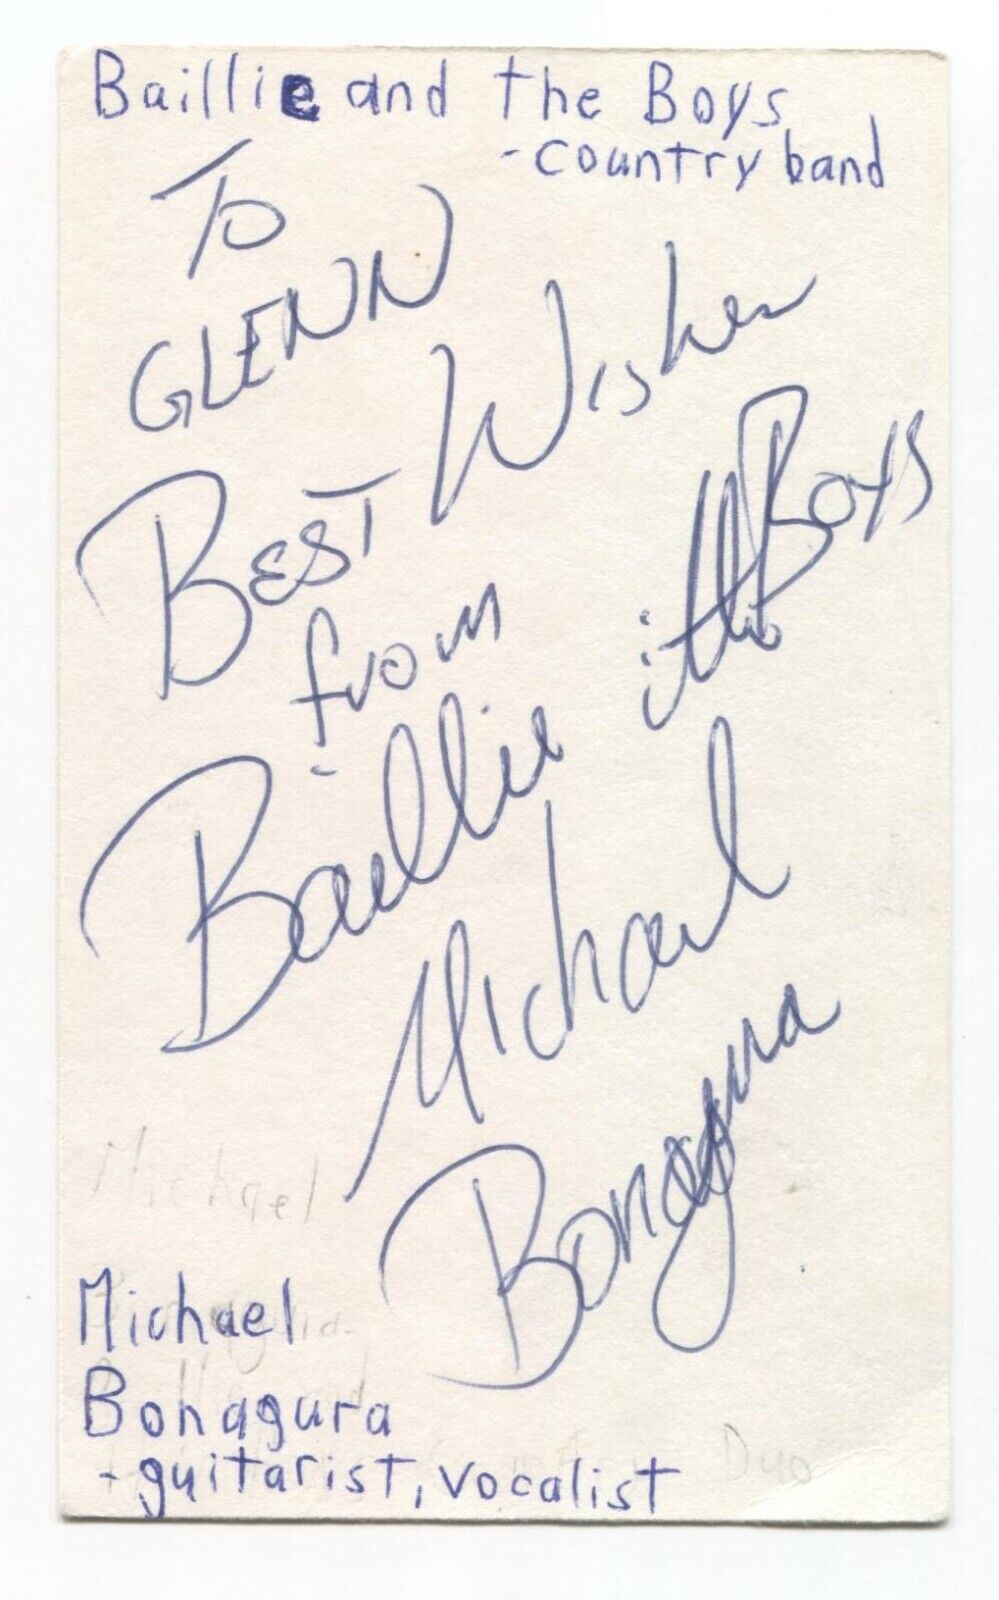 Baillie and the Boys
- country band
To
GLENN
BEST Wishes
from
Baillie
BOYS
Michael
Bonagura
Michael
Michael
Bonagura
- guitarist, vocalist
Duo